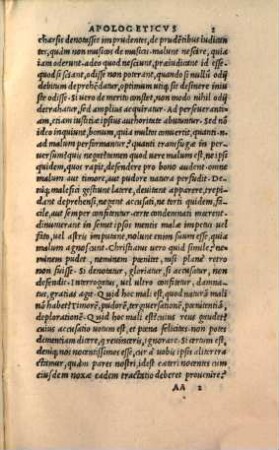 APOLOGETICVS 2
mus non magis de mus-malunt nescire, quia
iam oderunt. adeo quod nesciunt, præiudicant id esse
quod si sciant, odisse non poterant, quando si nulli odij
debitum deprehēdatur, optimum utiq; sit desinere iniu
ste odisse. Si uero de merito constet, non modo nihil odij
detrahatur, sed amplius acquiratur ad perseuerantiam,
etiam iustitiæ ipsius authoritate. Sed nō
ideo inquiunt, bonum, quia multos conuertit, quanti n.
ad malum performantur? quanti transfugæ in per
uersum? quis negat? tamen quod uere malum est, ne ipsi
quidem, quos rapit, defendere pro bono audent. omne
malum aut timore, aut pudore natura perfudit. Deni
q; malefici gestiunt latere, deuitant apparere, trepi
dant deprehensi, negant accusati, ne torti quidem facile,
aut semper confitentur. certe condemnati mœrent. di
numerant in semet ipsos mentis malæ impetus uel
fato, uel astris imputant. nolunt enim suum esse, quia
malum agnoscunt. Christianus uero quid simile? ne
minem pudet, neminem pœnitet, nisi plane retro non
fuisse. Si denotatur, gloriatur, si accusatur, non
defendit. Interrogatus, uel ultro confitetur, dam
natus, gratias agit. Quid hoc mali est, quod natura mali
nō habet? Timorē, pudorē, tergiuersationē, pœnitentiā,
deplorationē. Quid hoc mali est? cuius reus gaudet?
cuius accusatio uotum est, et pœna felicitas? non pot
dementiam dicere, q; reuinceris, ignorare. Si certum est,
deniq; nos nocentissimos esse, cur à uobis ipsis aliter tra
ctamur, quàm pares nostri, id est cæteri nocentes? cum
eiusdem noxæ eadem tractatio deberet prouenire.
AA 2